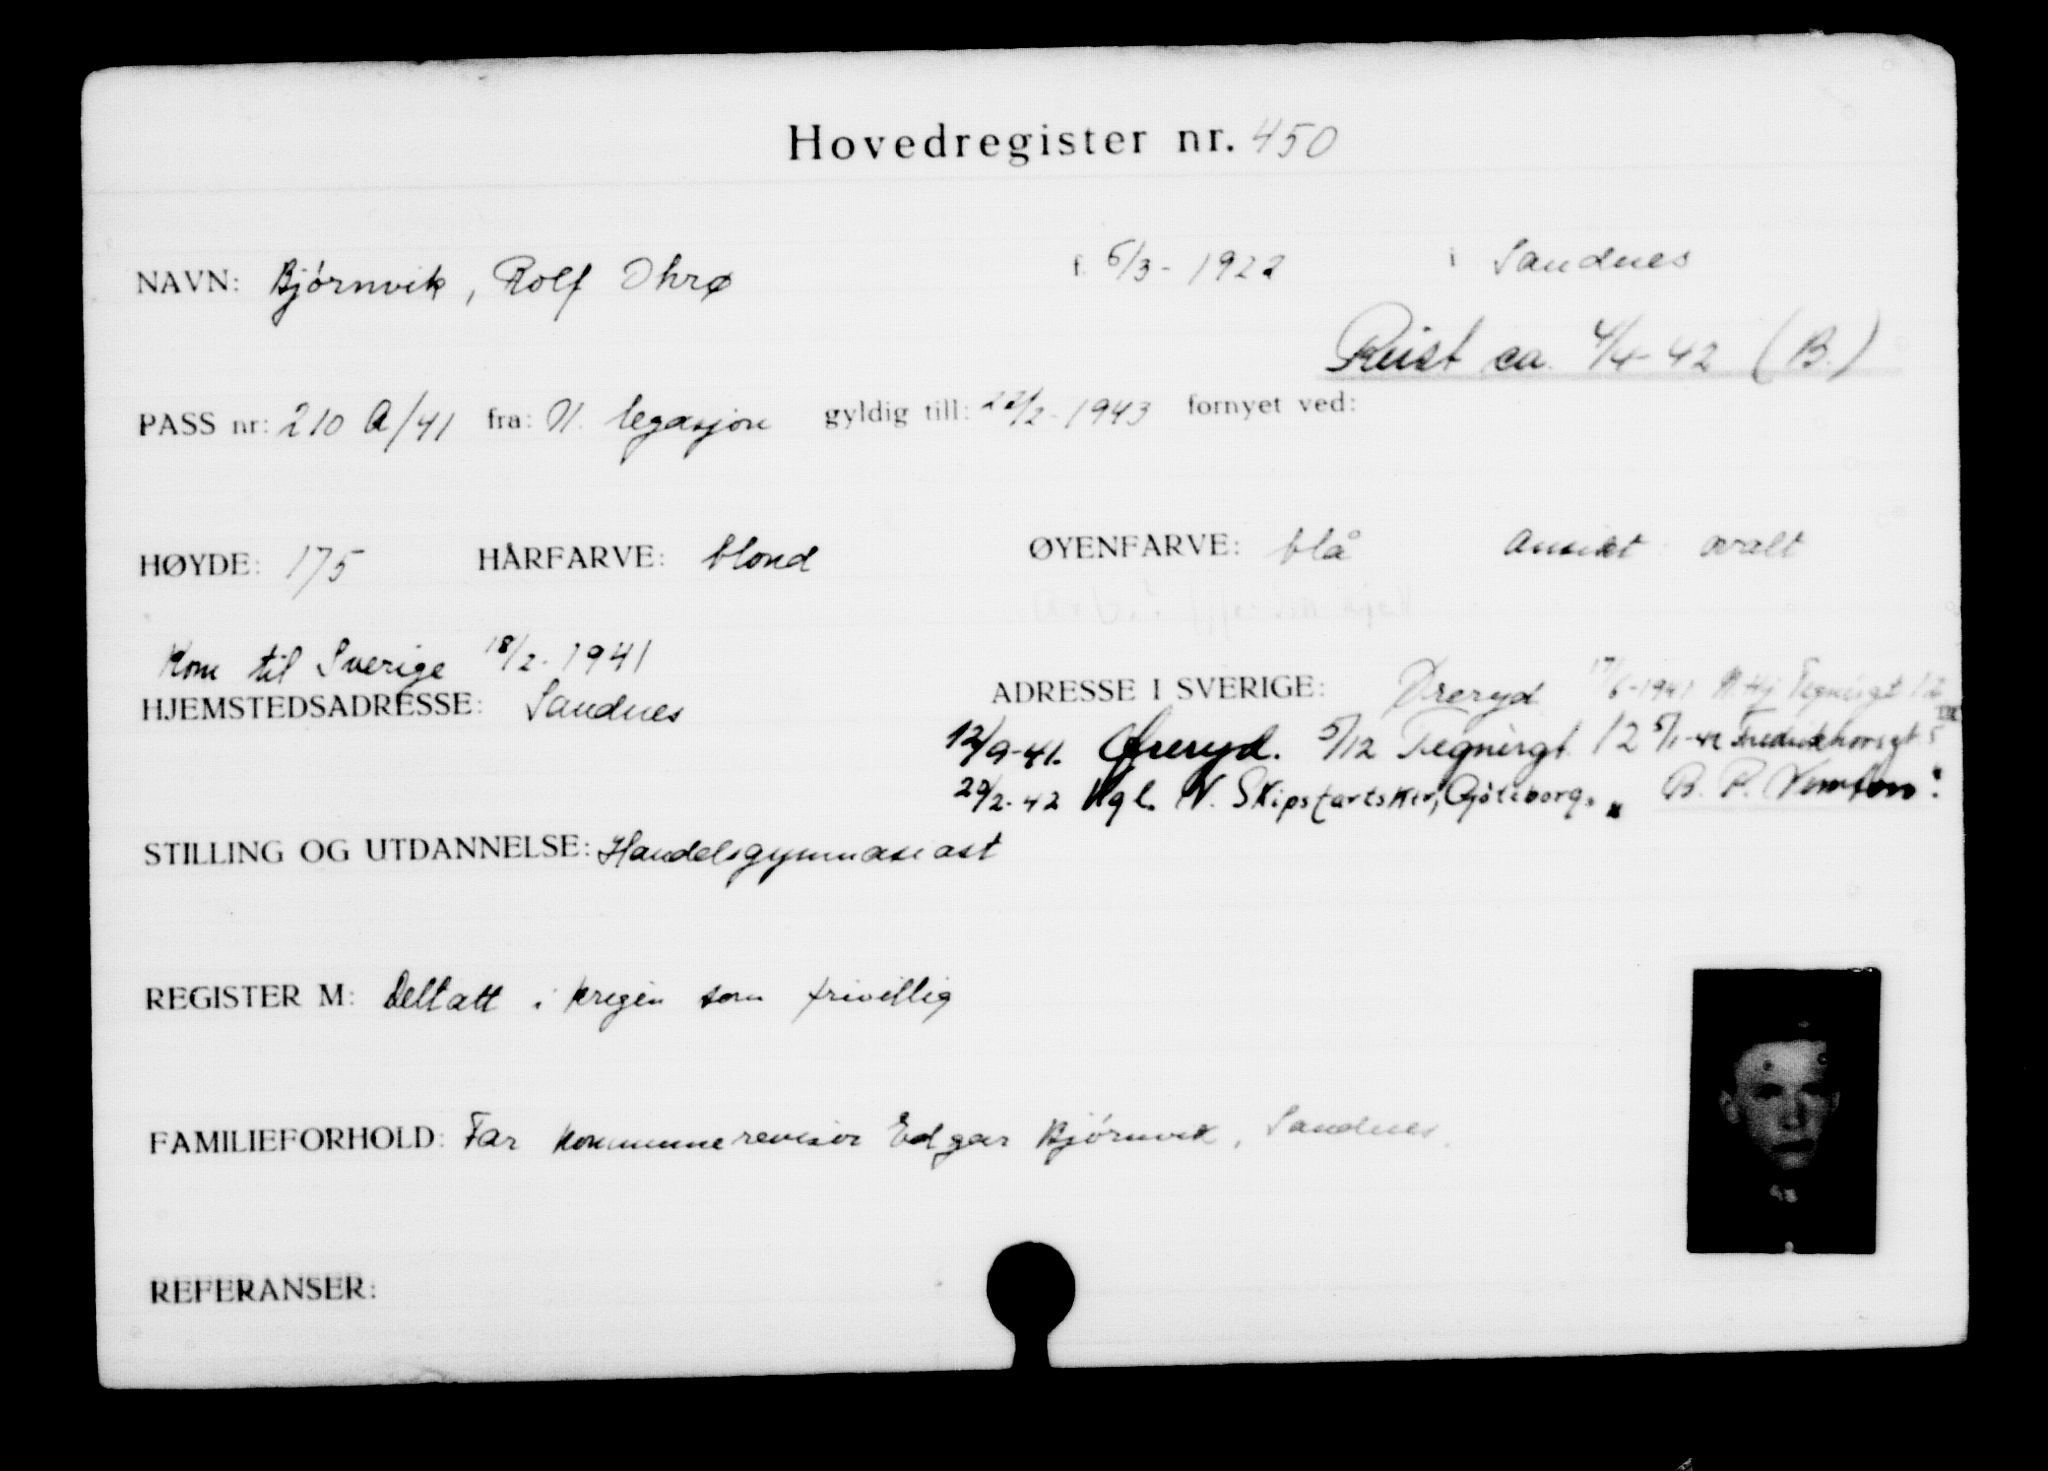 Hovedregister nr. 450
NAVN: Bjórnvik, Rolf Ohrø f. 6/3- 1922 i Sandnes
Reist ca. 4/4-42 (B.)
PASS nr: 210 A/41 fra: N. legasjon gyldig till: 22/2-1943 fornyet ved:
HØYDE: 175 HÅRFARVE: blond ØYENFARVE: blå Ansikt ovalt
Kom til Sverige 18/2-1941
HJEMSTEDSADRESSE: Sandnes ADRESSE I SVERIGE: Øreryd 17/6-1941 N. Hj Tegnérgt 12
12/9-41. Øreryd. 5/12 Tegnérgt 12 5/1-42 Fredrikhovsgt 5
29/2-42 Kgl. N. Skipsfartsktr, Göteborg. "B. P. Newton".
STILLING OG UTDANNELSE: Handelsgymnasiast
REGISTER M: Deltatt i krigen som frivillig
FAMILIEFORHOLD: Far kommunerevisor Edgar Bjórnvik, Sandnes.
REFERANSER: